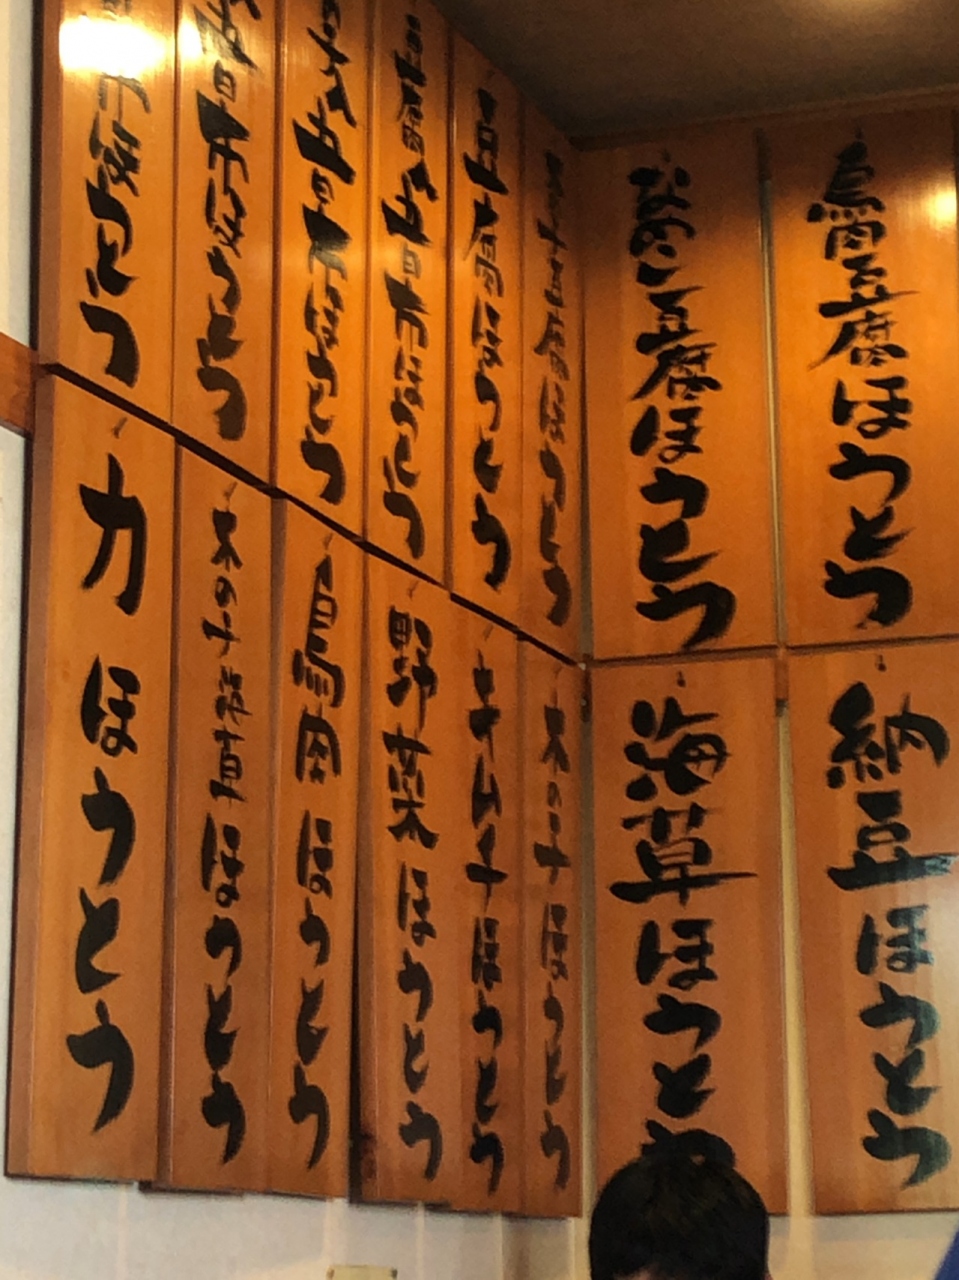 鳥肉豆腐ほうとう
なめこ豆腐ほうとう
木の子豆腐ほうとう
豆腐ほうとう
豆腐入五日市ほうとう
の子入五日市ほうとう
五日市ほうとう
市ほうとう
納豆ほうとう
海草ほうとう
木の子ほうとう
キムチほうとう
野菜ほうとう
鳥肉ほうとう
木の子ほうとう
力ほうとう